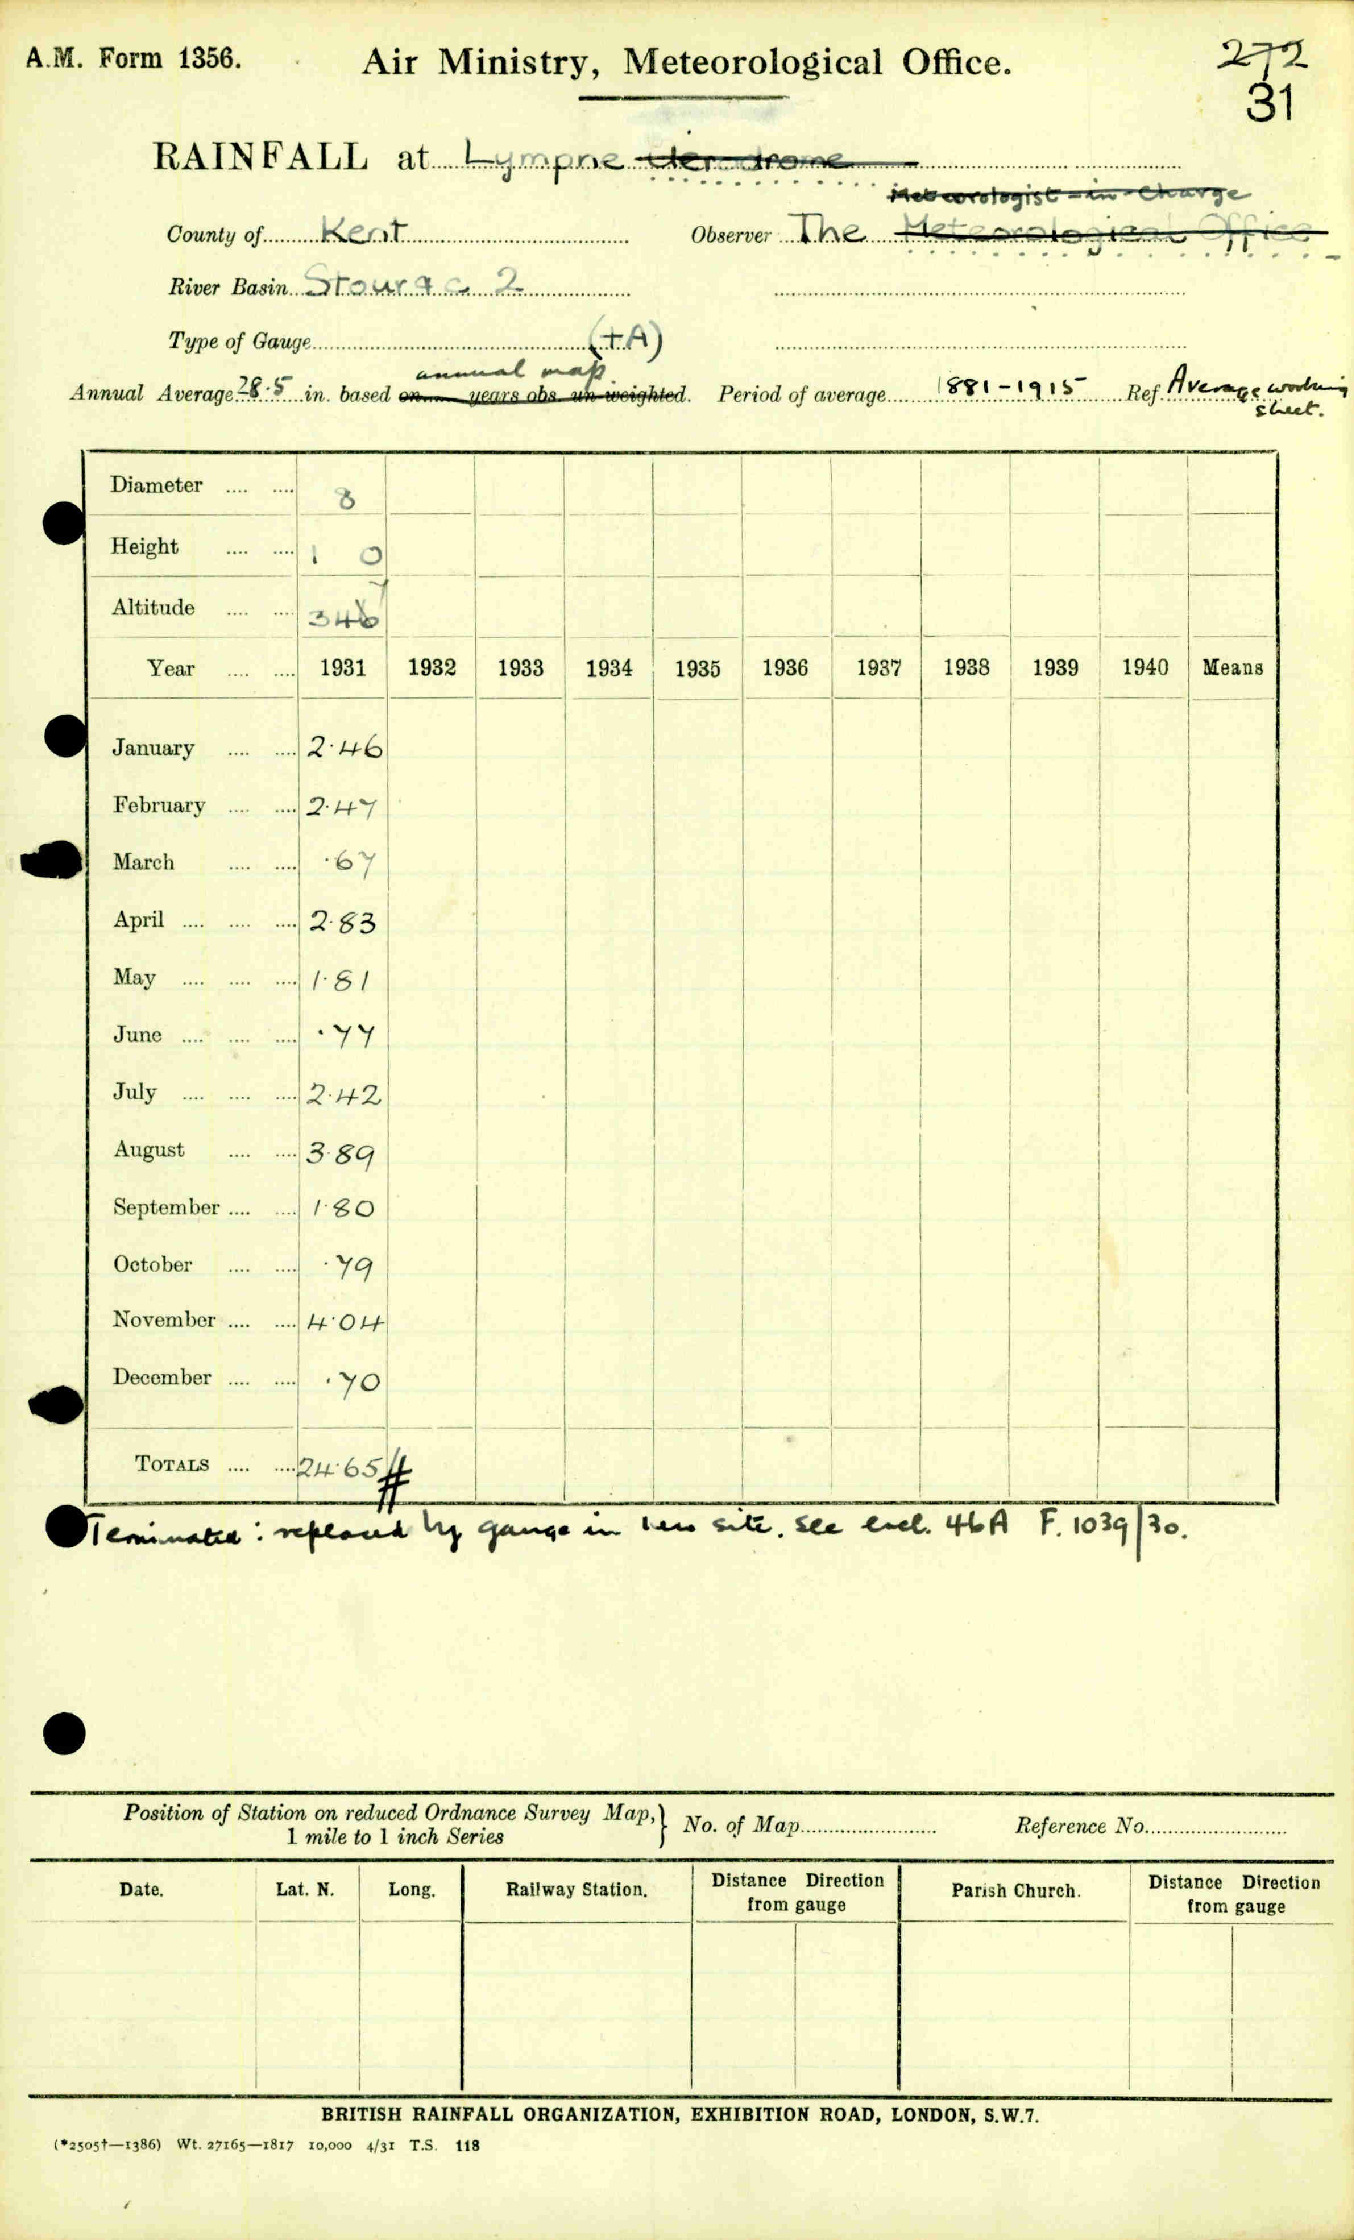 A.M. Form 1356. Air Ministry, Meteorological Office. 272
31
RAINFALL at Lympne Aerodrome
Meteorologist-in-Charge
County of Kent Observer The Meteorological Office
River Basin Stour &c 2
Type of Gauge (+A)
annual map
Annual Average 28.5 in. based on years obs. un-weighted. Period of average 1881-1915 Ref. Average working sheet.
Diameter 8
Height 1 0
7
Altitude 346
Year 1931 1932 1933 1934 1935 1936 1937 1938 1939 1940 Means
January 2.46
February 2.47
March .67
April 2.83
May 1.81
June .77
July 2.42
August 3.89
September 1.80
October .79
November 4.04
December .70
TOTALS 24.65 #
Terminated: replaced by gauge in new site. See encl. 46A F. 1039/30.
Position of Station on reduced Ordnance Survey Map, } No. of Map Reference No.
1 mile to 1 inch Series
Date. Lat. N. Long. Railway Station. Distance Direction from gauge Parish Church. Distance Direction from gauge
BRITISH RAINFALL ORGANIZATION, EXHIBITION ROAD, LONDON, S.W.7.
(*2505†—1386) Wt. 27165—1817 10,000 4/31 T.S. 118